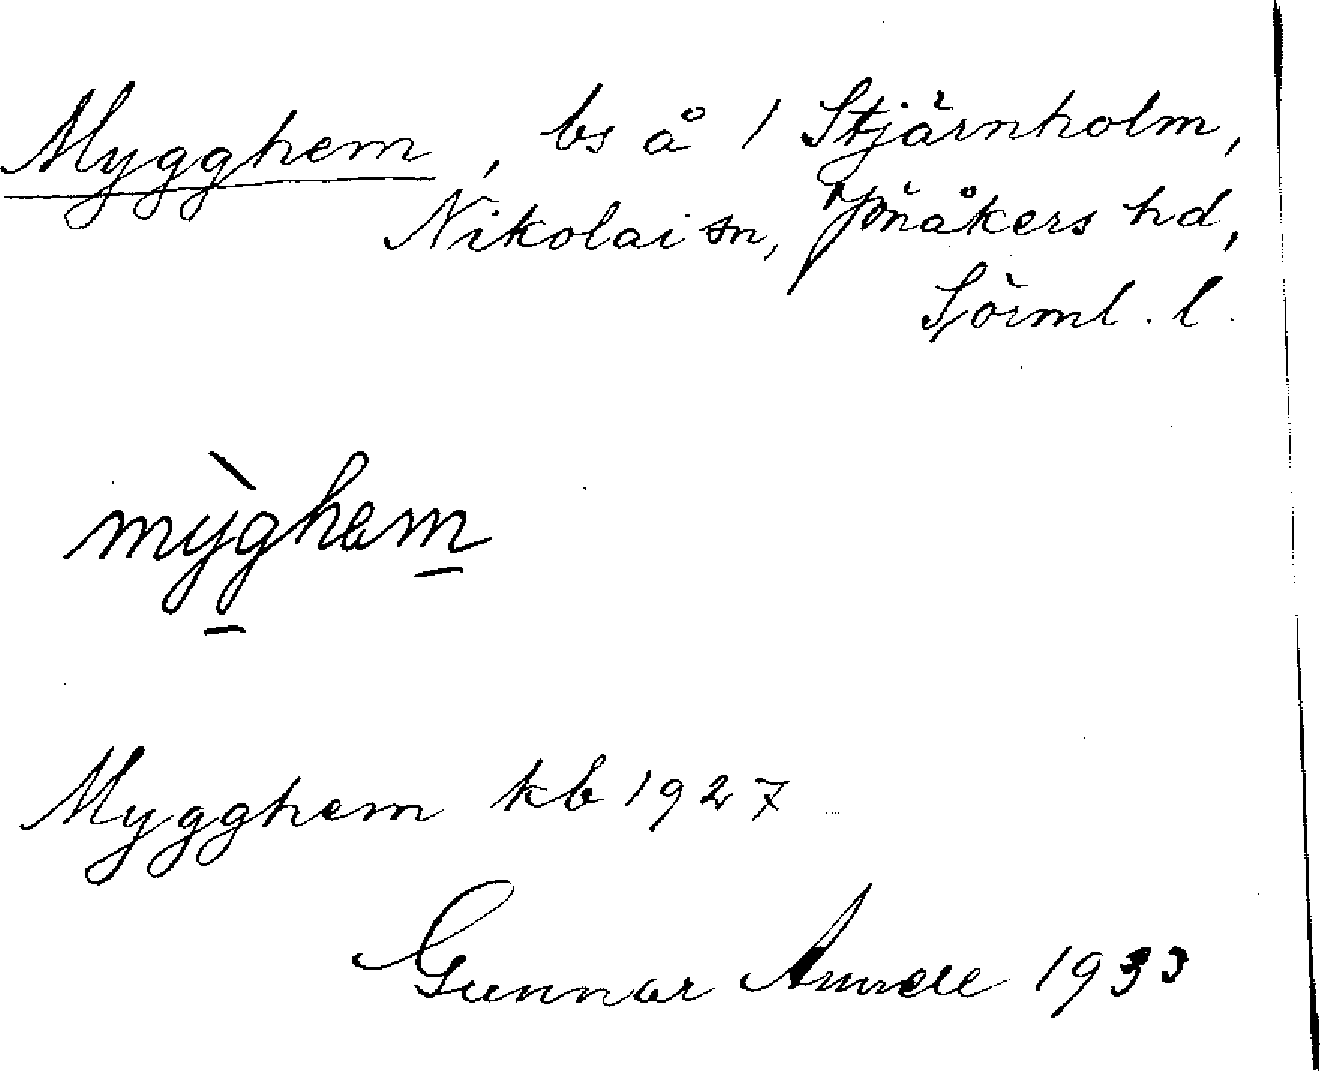 Mygghem, bs å 1 Stjärnholm,
Nikolai sn, Jönåkers hd,
Sörml. l.
mỳghem
Mygghem kb 1927
Gunnar 1933